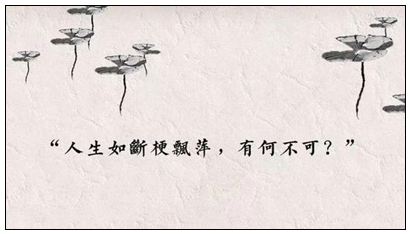 “人生如斷梗飄萍，有何不可？”